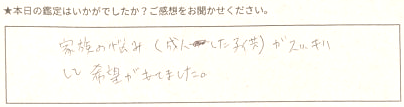 ★本日の鑑定はいかがでしたか？ご感想をお聞かせください。
家族の悩み（成人した子供）がスッキリ
して希望がもてました。